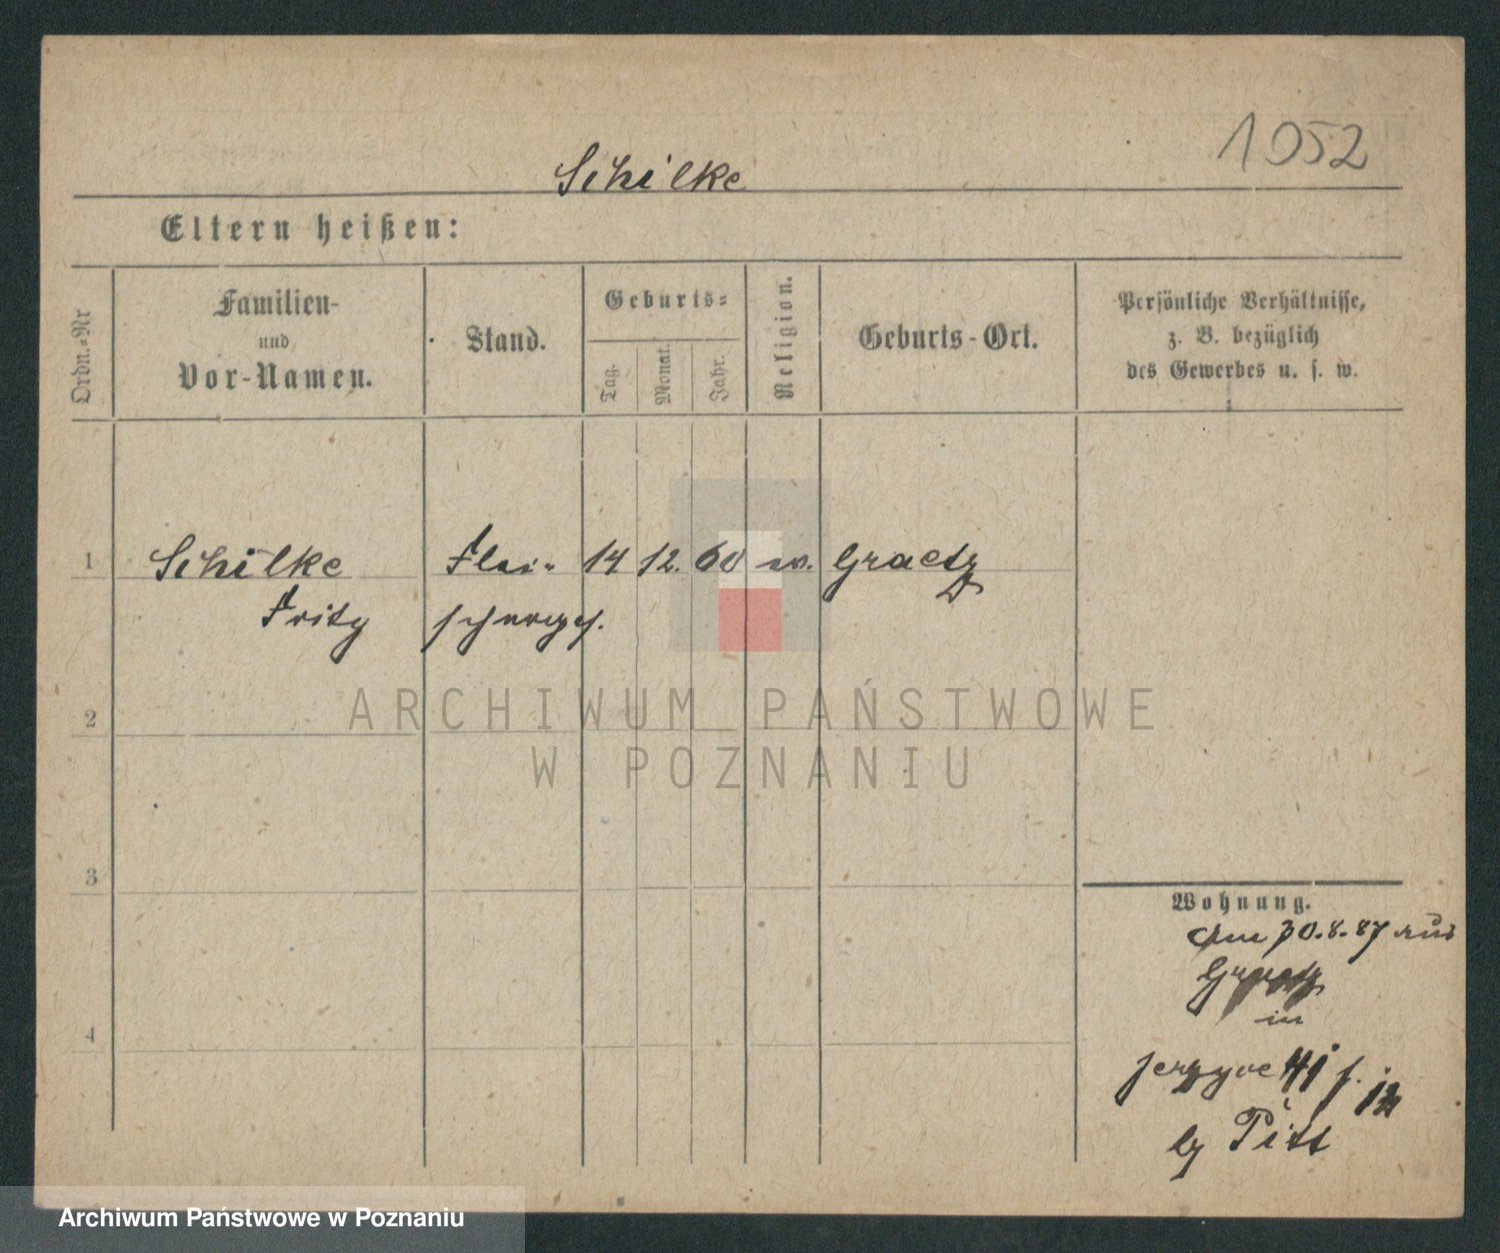 1052
Schilke
Eltern heißen:
Ordn.-Nr
Familien-
und
Vor-Namen.
Stand.
Geburts-
Tag.
Monat.
Jahr.
Religion.
Geburts-Ort.
Persönliche Verhältnisse,
z. B. bezüglich
des Gewerbes u. s. w.
1 Schilke Flei- 14 12. 60 Graetz
Fritz
2
3
4
ARCHIWUM PAŃSTWOWE
W POZNANIU
Wohnung.
30.8.87 aus
Graetz
in
by Pitt
Archiwum Państwowe w Poznaniu